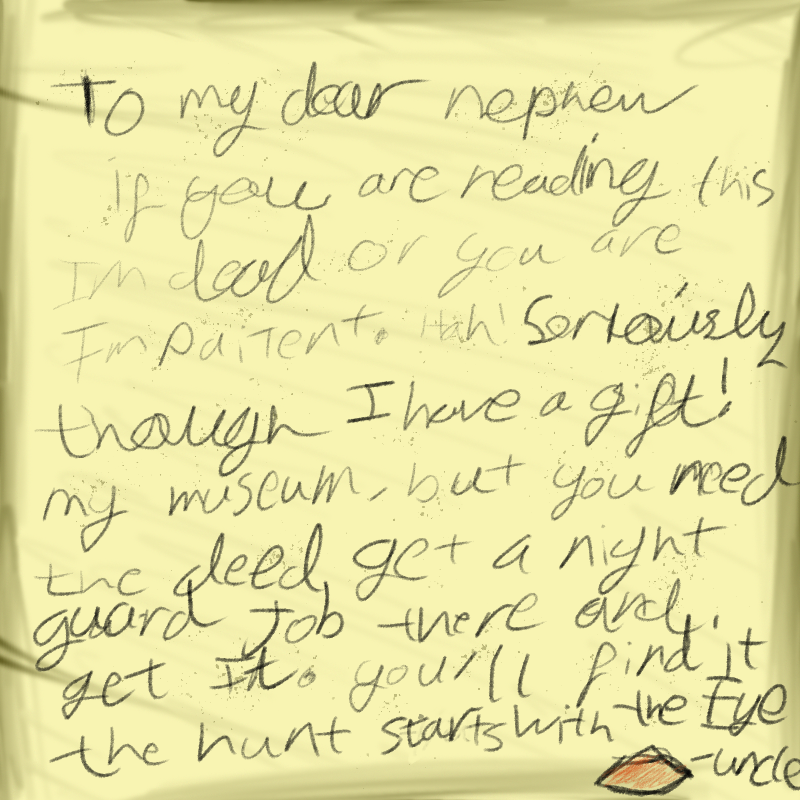 To my dear nephew
If you are reading this
Im dead or you are
Impaitent. Hah! Seriously
though I have a gift!
my museum, but you need
the deed, get a night
guard job there and
get it. you'll find it
the hunt starts with the Eye
-uncle